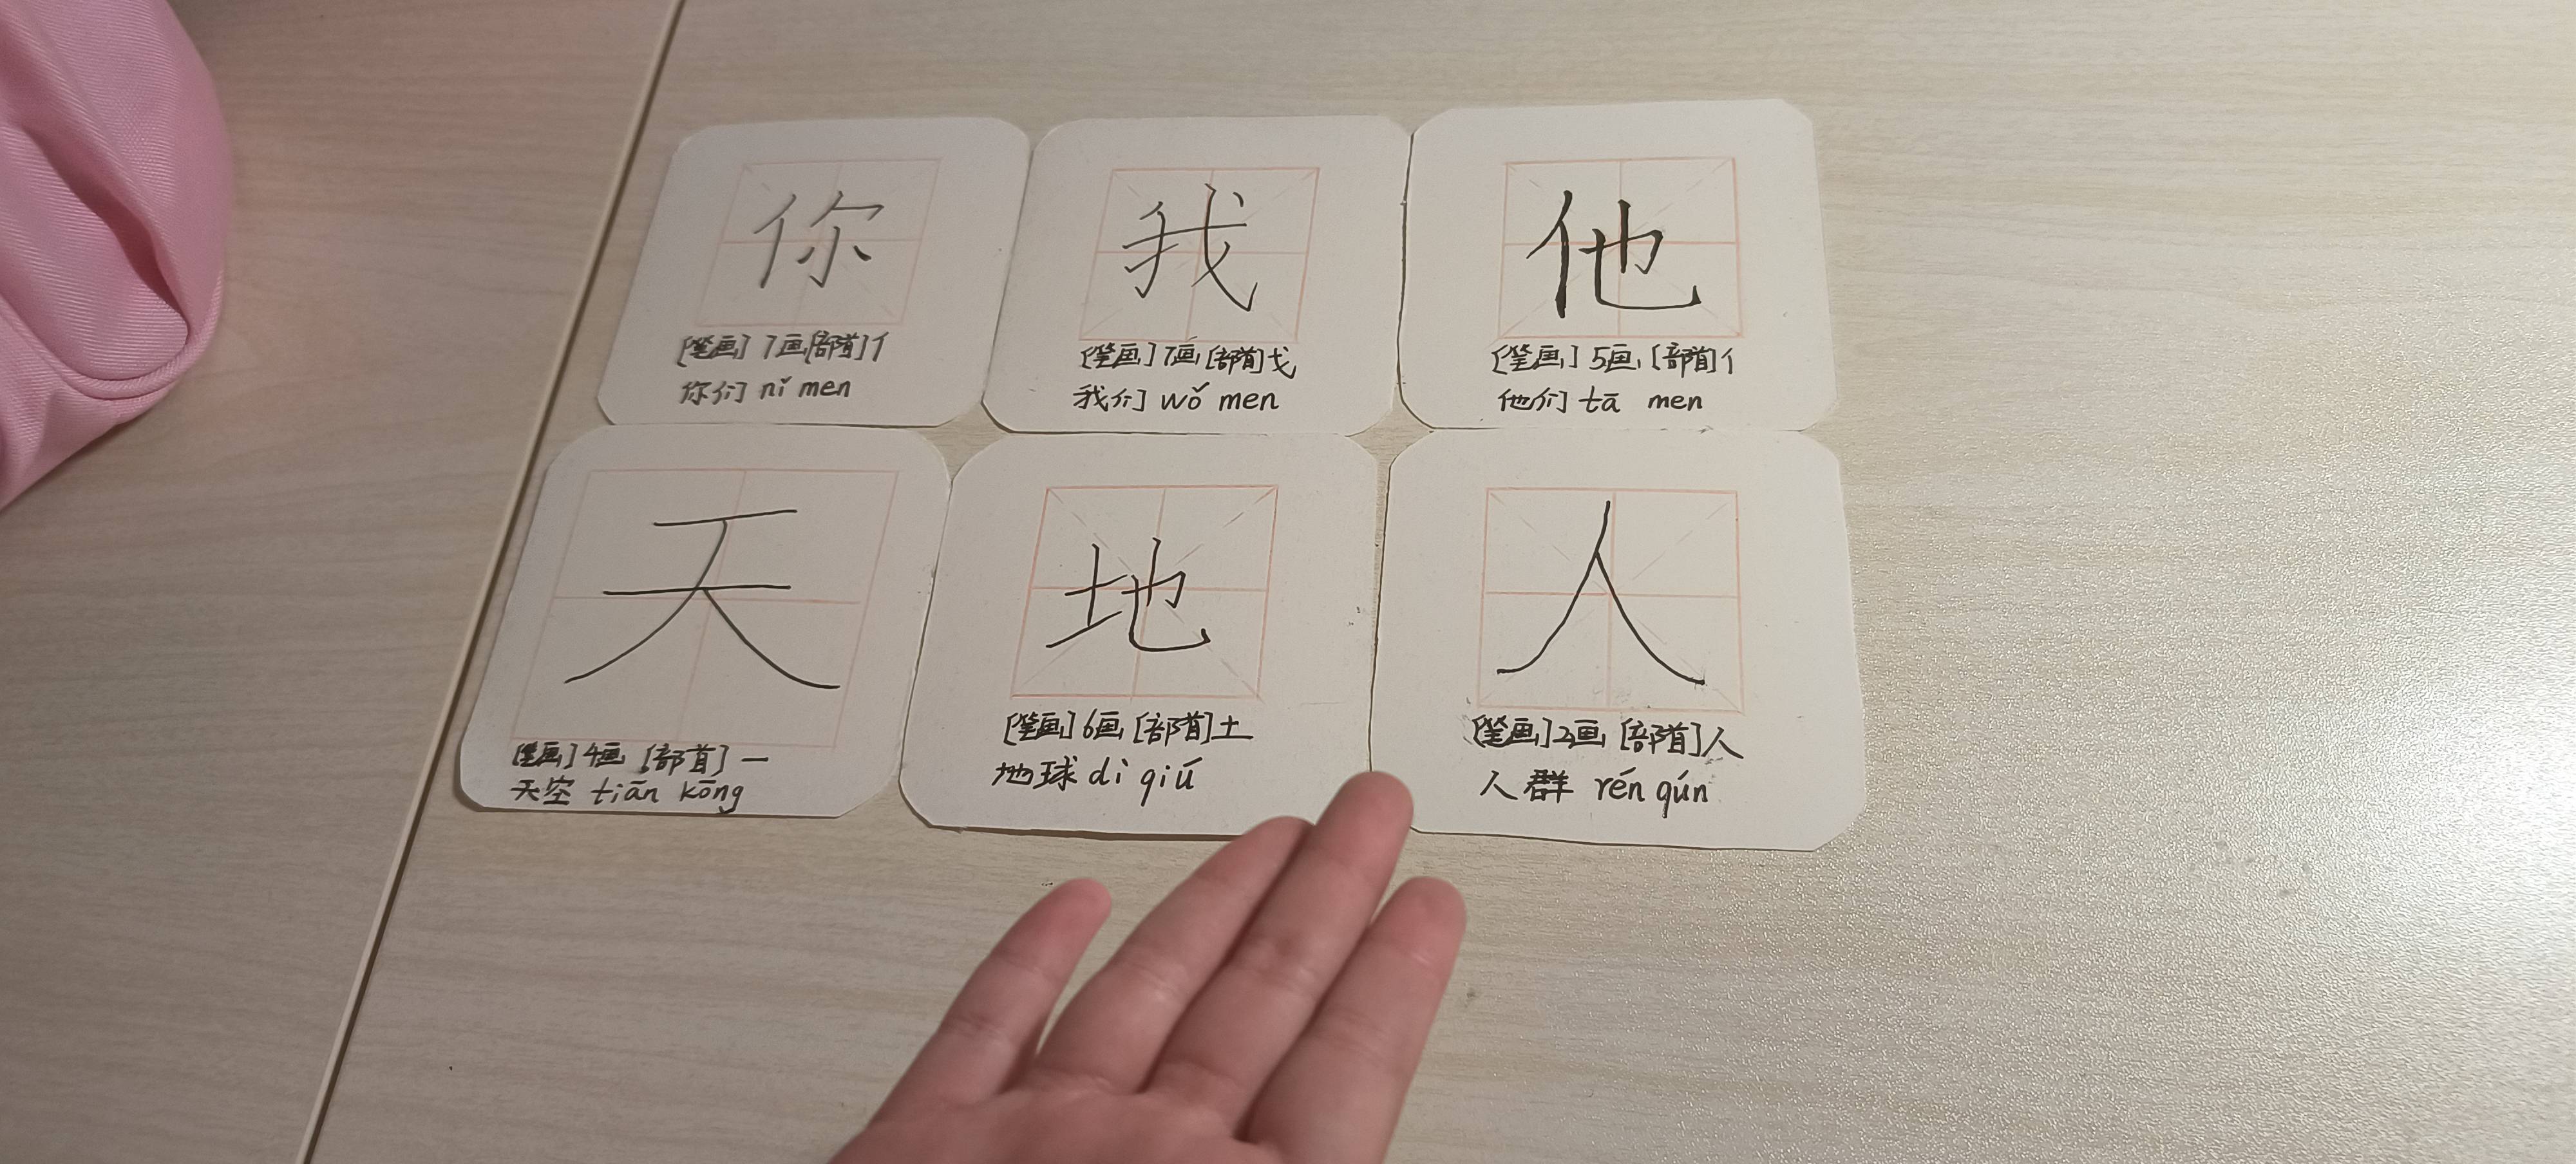 你
[笔画] 7画 [部首] 亻
你们 nǐ men
我
[笔画] 7画 [部首] 戈
我们 wǒ men
他
[笔画] 5画 [部首] 亻
他们 tā men
天
[笔画] 4画 [部首] 一
天空 tiān kōng
地
[笔画] 6画 [部首] 土
地球 dì qiú
人
[笔画] 2画 [部首] 人
人群 rén qún